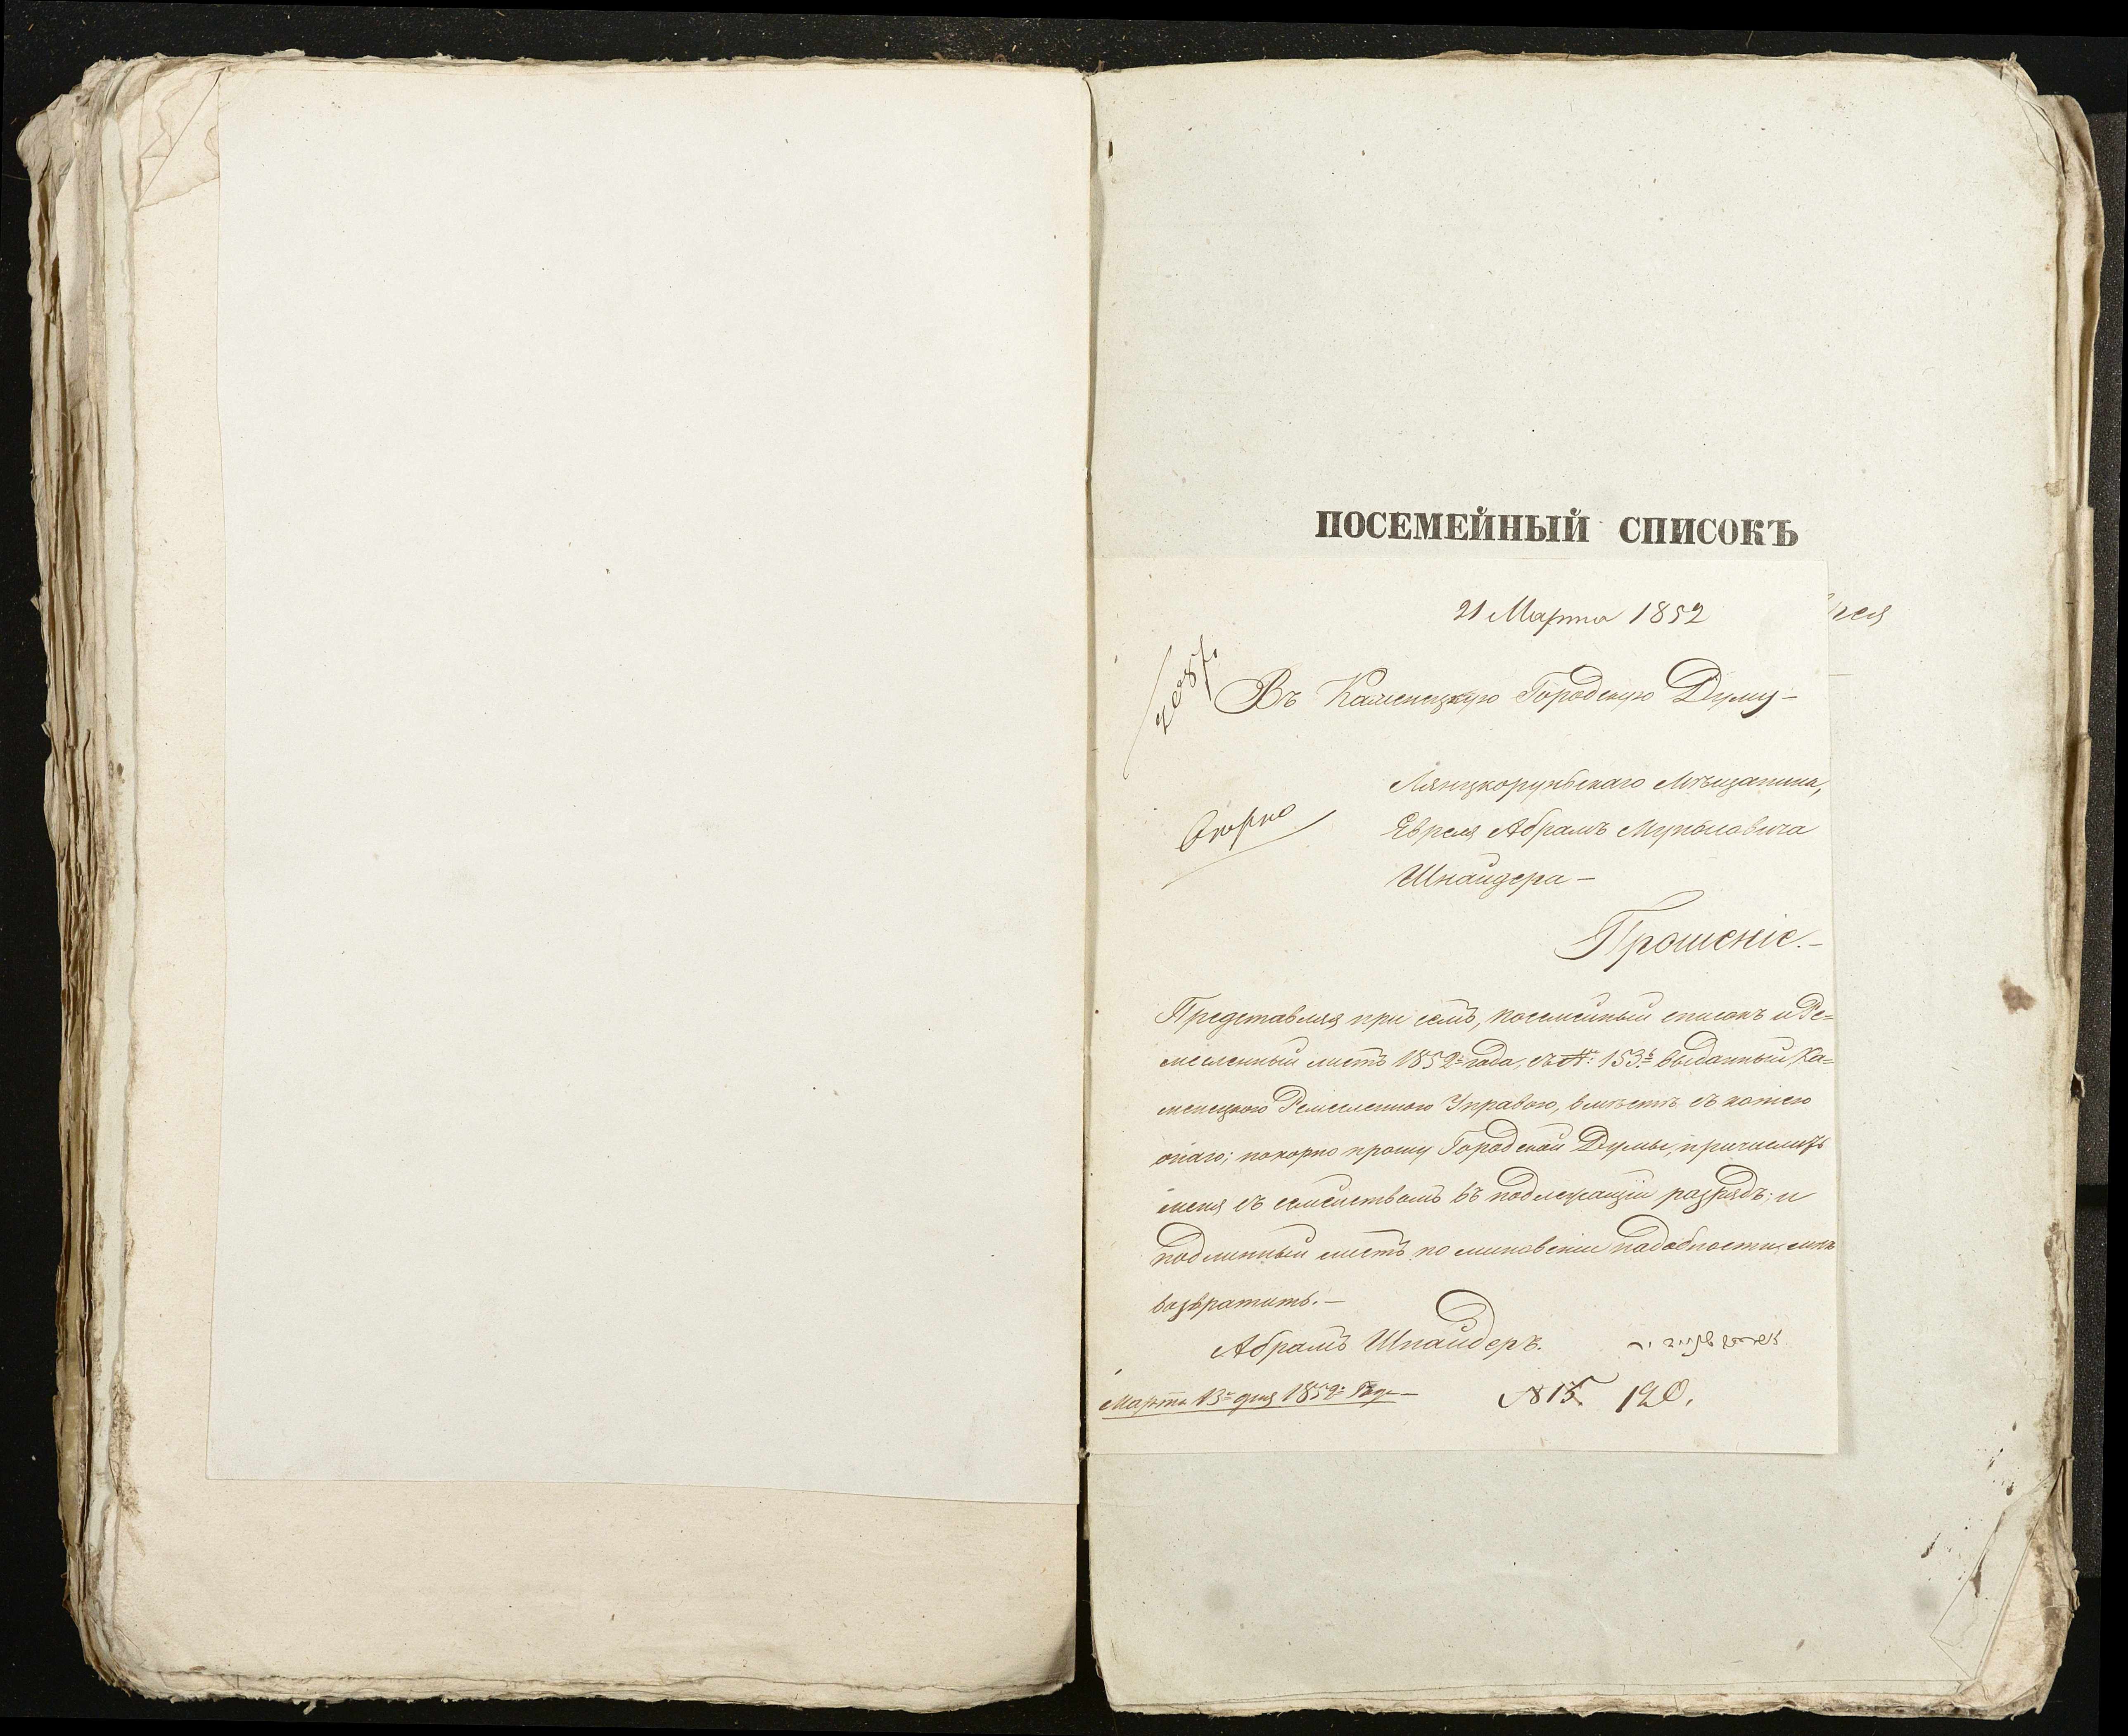 ПОСЕМЕЙНЫЙ СПИСОКЪ
21 Марта 1852
рея
Въ Каменецкую Городскую Думу–
Лянцкорунскаго Мѣщанина,
Еврея Абрамъ
Шнайдера–
Прошеніе.–
Представляя при семъ, посемейный списокъ и Ре=
месленный листъ 1852 года, съ №: 153 выданный Ка=
менецкою Ремесленною Управою, вмѣстѣ съ копіею
онаго; покорно прошу Городской Думы, причислить
меня съ семействомъ въ подлежащій разрядъ; и
подлинный листъ по минованіи надобности мнѣ
возвратить.–
Абрамъ Шнайдеръ.
Марта 13 дня 1852 Года–
№ 15 120.